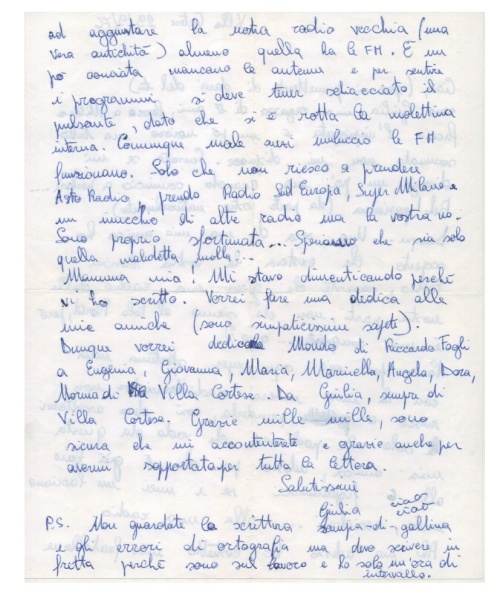 ad aggiustare la nostra radio vecchia (una
vera antichità) almeno quella ha le FM. È un
po' conciata mancano le antenne e per sentire
i programmi si deve tener schiacciato il
pulsante, dato che si è rotta la molettina
interna. Comunque male anzi maluccio le FM
funzionano. Solo che non riesco a prendere
Astro Radio, prendo Radio Sud Europa, Super Milano e
un mucchio di altre radio ma la vostra no.
Sono proprio sfortunata... Speriamo che sia solo
quella maledetta molla...
Mamma mia! Mi stavo dimenticando perché
vi ho scritto. Vorrei fare una dedica alle
mie amiche (sono simpaticissime sapete).
Dunque vorrei dedicare Mondo di Riccardo Fogli
a Eugenia, Giovanna, Maria, Marinella, Angela, Dora,
Norma di Villa Cortese. Da Giulia, sempre di
Villa Cortese. Grazie mille mille, sono
sicura che mi accontentate e grazie anche per
avermi sopportata per tutta la lettera.
Salutissimi
Giulia ciao
ciao
P.S. Non guardate la scrittura zampa-di-gallina
e gli errori di ortografia ma devo scrivere in
fretta perché sono sul lavoro e ho solo un'ora di
intervallo.